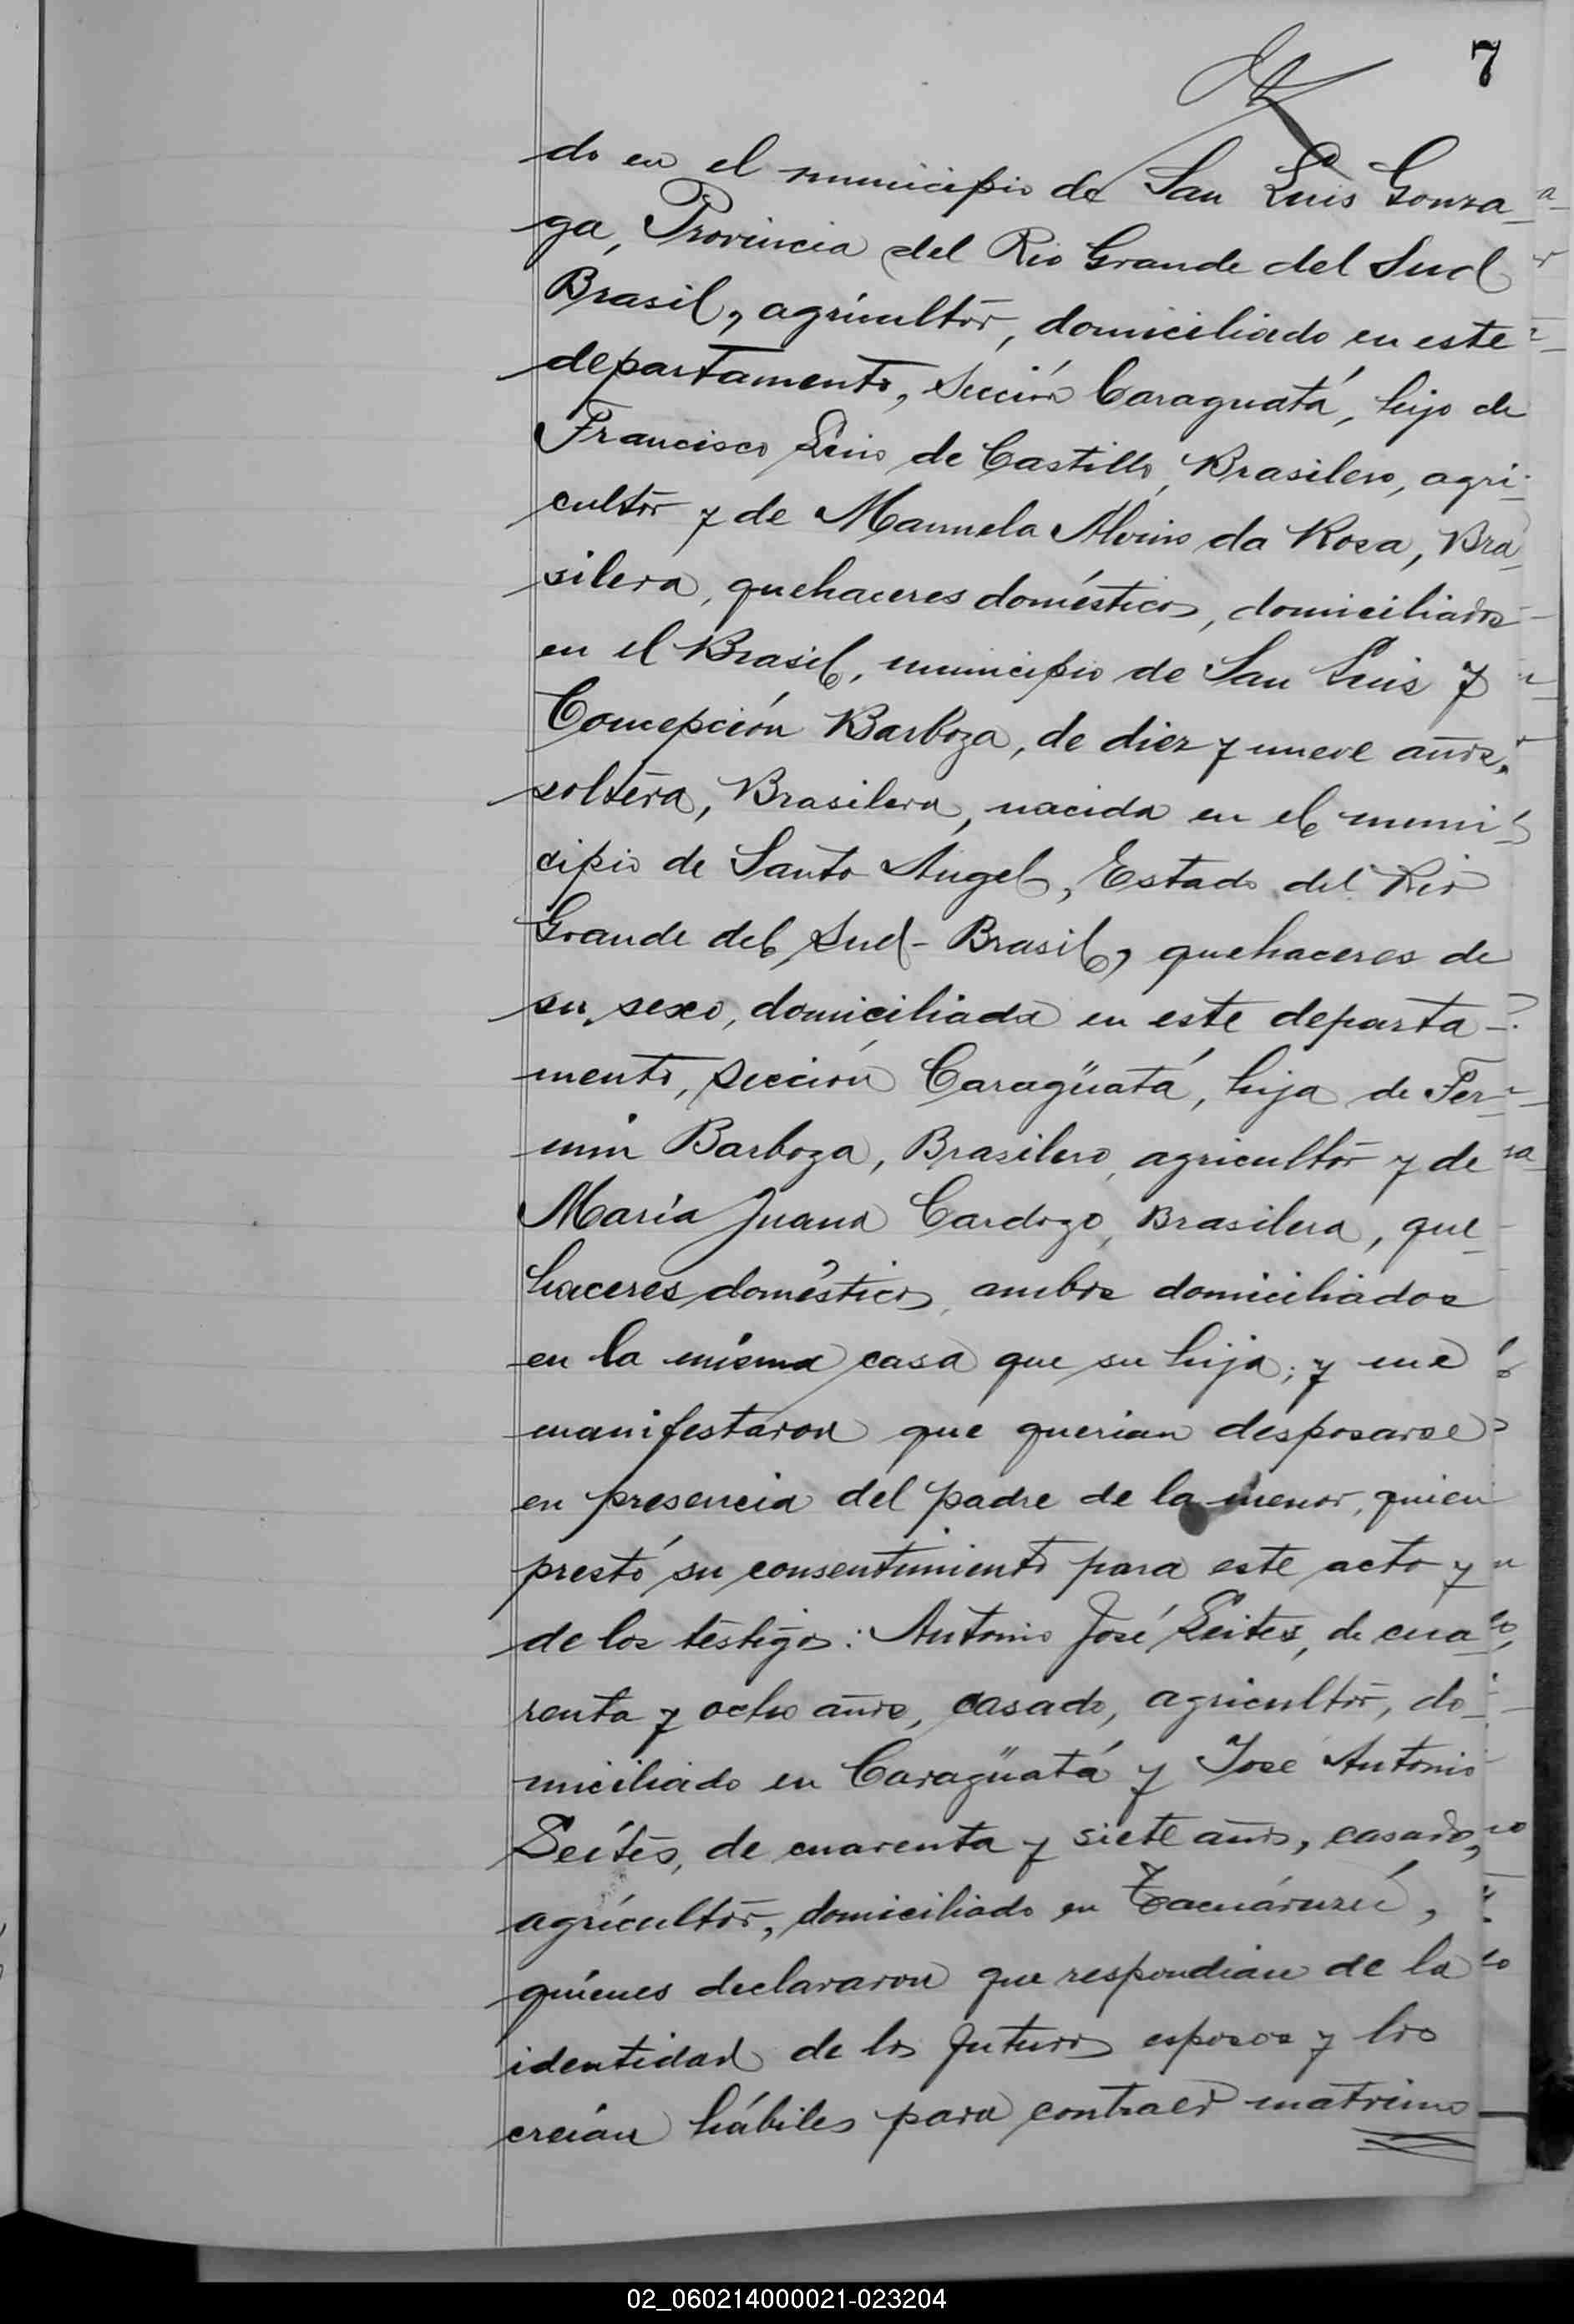 7
do en el municipio de San Luis Gonza-
ga, Provincia del Rio Grande del Sud
Brasil, agricultor, domiciliado en este
departamento, Sección Caraguatá, hijo de
Francisco Luis de Castillo, Brasilero, agri-
cultor y de Manuela Alvino da Rosa, Bra-
silera, quehaceres domésticos, domiciliados
en el Brasil, municipio de San Luis y
Concepción Barboza, de diez y nueve años,
soltera, Brasilera, nacida en el muni-
cipio de Santo Angel, Estado del Rio
Grande del Sud - Brasil, quehaceres de
su sexo, domiciliada en este departa-
mento, sección Caragüatá, hija de Fer-
min Barboza, Brasilero, agricultor y de
María Juana Cardozo, Brasilera, que-
haceres domésticos, ambos domiciliados
en la misma casa que su hija; y me
manifestaron que querian desposarse
en presencia del padre de la menor, quien
prestó su consentimiento para este acto y
de los testigos: Antonio José Leites, de cua-
renta y ocho años, casado, agricultor, do-
miciliado en Caragüatá y José Antonio
Leítes, de cuarenta y siete años, casado,
agricultor, domiciliado en Tacuáruzú,
quienes declararon que respondian de la
identidad de los futuros esposos y los
creían hábiles para contraer matrimo
02_060214000021-023204